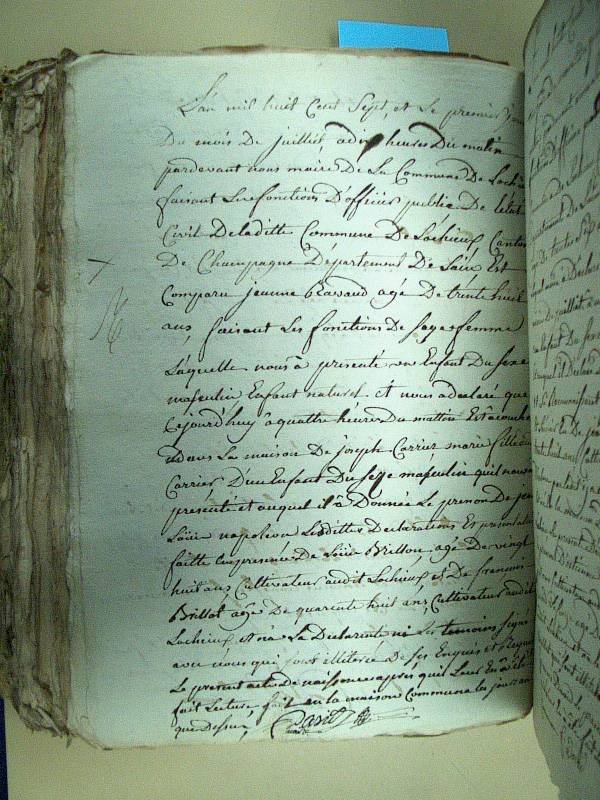 L'an mil huit Cent Sept, et Le premier jour
Du mois De juillet a dix heures Du matin
pardevant nous maire De La Commune De Lochieu
faisant Les fonctions D'officier public De letat
Civil De laditte Commune De Lochieux Canton
De Champagne Département De Lain Est
Comparu jeanne Ravaud agé De trente huit
ans, faisant Les fonctions De sage femme
Laquelle nous à presenté un Enfant Du sexe
masculin Enfant naturel et nous a declaré que
Cejourd'huy a quatre heures Du mattin Est acouché
dans La maison De joseph Carrier marie
Carrier D'un Enfant Du sexe masculin quil nous a
présenté et auquel il à Donnée Le prenom De jean
Loüis napoleon Lesdittes Declarations Et presentation
faitte en presence De Loüis Brillon agé De vingt
huit ans Cultivateur audit Lochieux et De francois
Brillat agé De quarente huit ans Cultivateur audit
Lochieux, et La Declarente ni Les temoins signé
avec nous qui sont illiterée De Ses Enquis et Requis
Le présent acte De naissances après quil Leur En à été
fait Lecture fait en la maison Commune les jour et an
que Dessus,